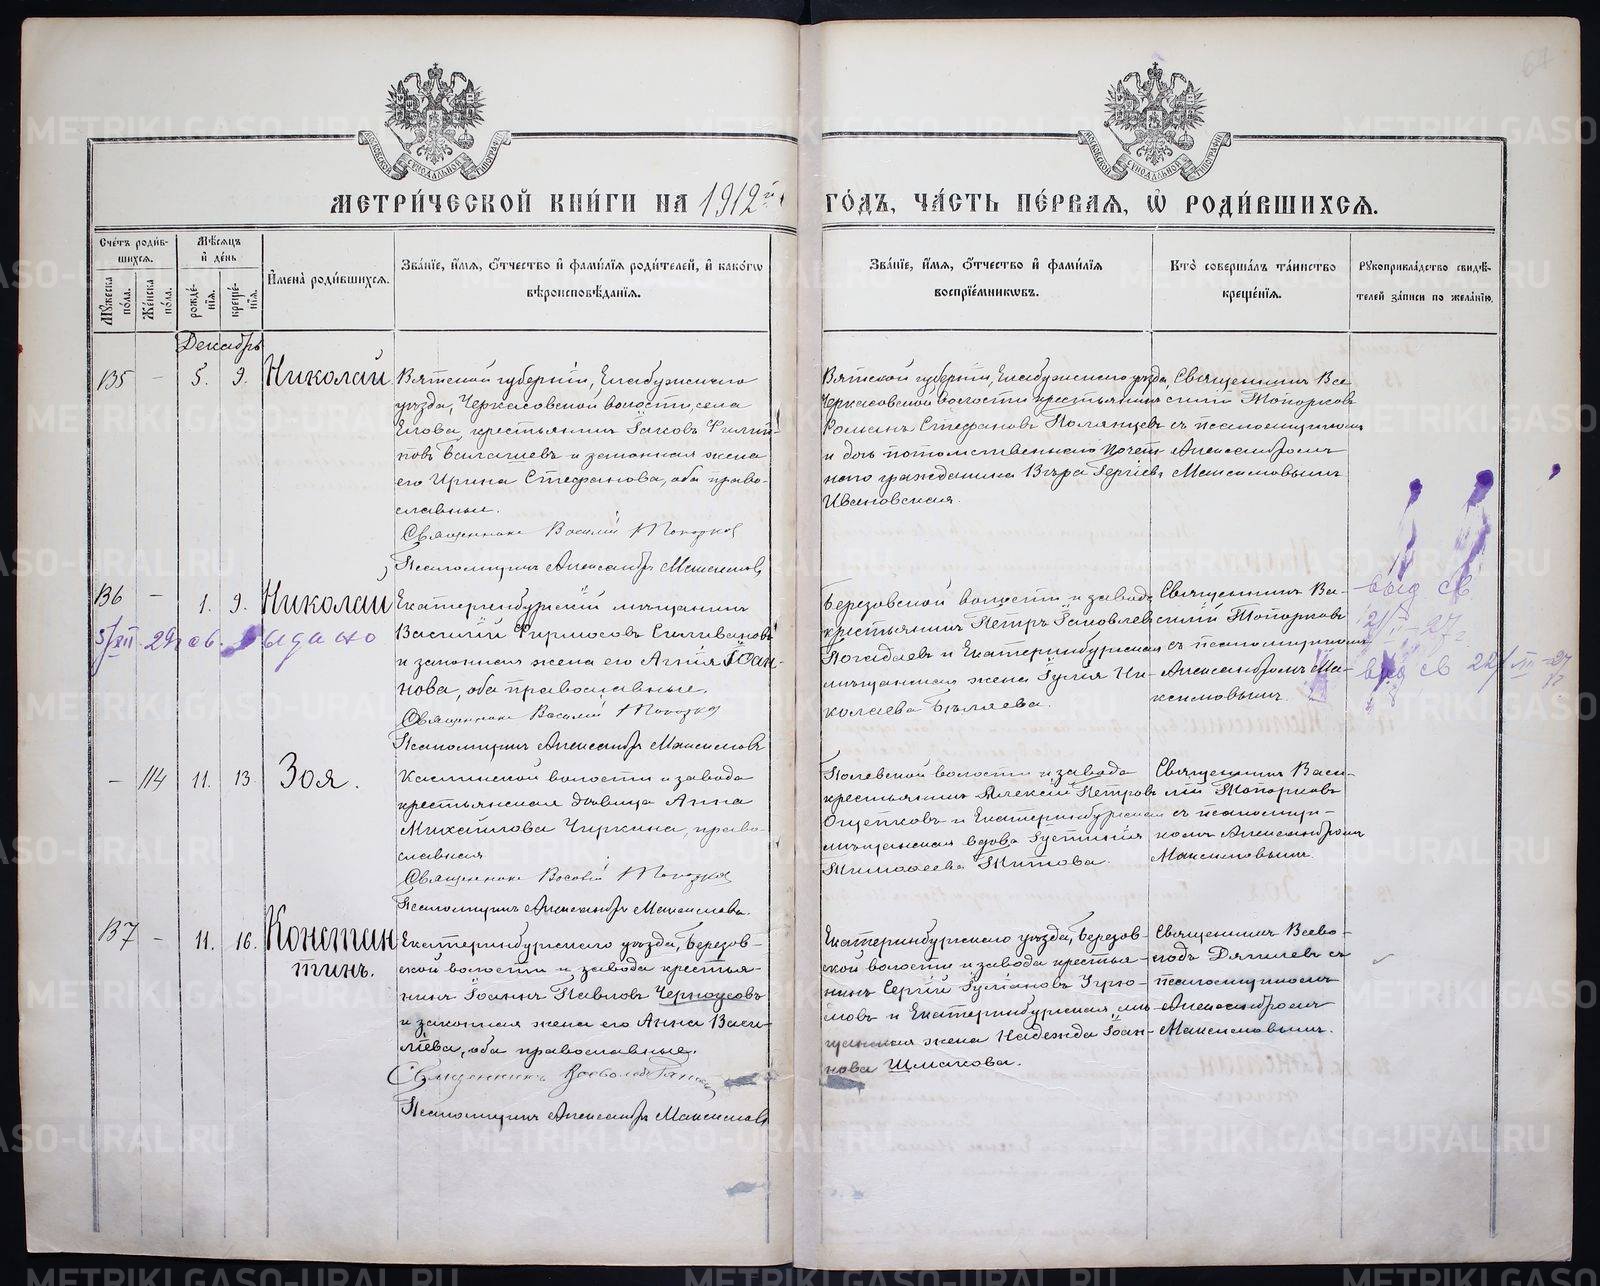 МЕТРИ́ЧЕСКОЙ КНИ́ГИ НА 1912й
ГО́ДЪ, ЧА́СТЬ ПЕ́РВАѦ, Ѽ РОДИ́ВШИХСѦ.
Сче́тъ роди́вшихсѧ.
Мѣ́сѧцъ и҆ де́нь
И҆мена̀ роди́вшихсѧ.
Зва́нїе, и҆́мѧ, о҆́тчество и҆ фами́лїѧ роди́телей, и҆ како́гѡ
вѣроисповѣ́данїѧ.
Зва́нїе, и҆́мѧ, о҆́тчество и҆ фами́лїѧ
воспрїе́мникѡвъ.
Кто̀ соверша́лъ та́инство
креще́нїѧ.
Рꙋкоприкла́дство свидѣ́-
телей за́писи по жела́нїю.
Мꙋ́жеска по́ла.
Же́нска по́ла.
рожде́нїѧ.
креще́нїѧ.
Декабрь
135 - 5. 9. Николай
Вятской губернiи, Елабужскаго
уѣзда, Черкасовской волости, села
Елова крестьянинъ Iаковъ Филип-
повъ Балашевъ и законная жена
его Ирина Стефанова, оба право-
славные.
Священникъ Василiй Топорков
Псаломщикъ Александръ Максимовъ
Вятской губернiи, Елабужскаго уѣзда,
Черкасовской волости крестьянинъ
Романъ Стефановъ
и дочь потомственнаго почет-
наго гражданина Вѣра Георгiева
Ивановская.
Священникъ Ва-
силiй Топорковъ
съ псаломщикомъ
Александромъ
Максимовымъ
136 - 1. 9. Николай
Екатеринбургскiй мѣщанинъ
Василiй Фирмосовъ Селивановъ
и законная жена его Агнiя Iоан-
нова, оба православные.
Священникъ Василiй Топорков
Псаломщикъ Александръ Максимовъ
5/XII 29 св. Выдано
Березовской волости и завода
крестьянинъ Петръ Iаковлевъ
Погадаевъ и Екатеринбургская
мѣщанская жена Iулiя Ни-
колаева Бѣляева.
Священникъ Ва-
силiй Топорковъ
съ псаломщикомъ
Александромъ Ма-
ксимовымъ.
выд св
выд св 22/III-27
- 114 11. 13 Зоя.
Каслинской волости и завода
крестьянская дѣвица Анна
Михайлова Чиркина, право-
славная
Священникъ Василiй Топорков
Псаломщикъ Александръ Максимовъ.
Полевской волости и завода
крестьянинъ Алексiй Петровъ
Ощепковъ и Екатеринбургская
мѣщанская вдова Iустинiя
Тимофеева Титова.
Священникъ Васи-
лiй Топорковъ
съ псаломщи-
комъ Александромъ
Максимовымъ.
137 - 11. 16. Констан
тинъ.
Екатеринбургскаго уѣзда, Березов-
ской волости и завода крестья-
нинъ Iоаннъ Павловъ Черноусовъ
и законная жена его Анна Васи-
лiева, оба православные.
Священникъ Всеволодъ
Псаломщикъ Александръ Максимовъ
Екатеринбургскаго уѣзда, Березов-
ской волости и завода крестья-
нинъ Сергiй Iулiановъ
и Екатеринбургская мѣ-
щанская жена Надежда Iоан-
нова Шмакова.
Священникъ Всево-
лодъ съ
псаломщикомъ
Александромъ
Максимовымъ.